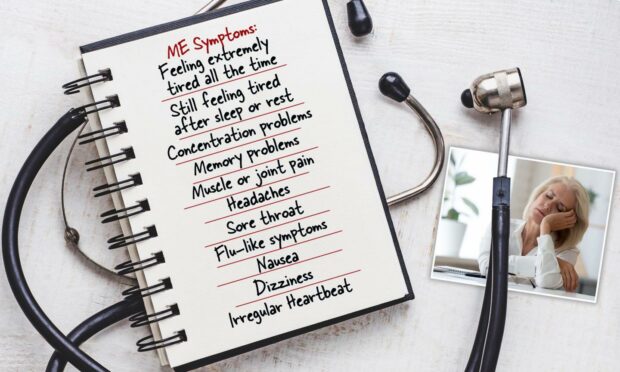 ME Symptoms:
Feeling extremely
tired all the time
Still feeling tired
after sleep or rest
Concentration problems
Memory problems
Muscle or joint pain
Headaches
Sore throat
Flu-like symptoms
Nausea
Dizziness
Irregular Heartbeat